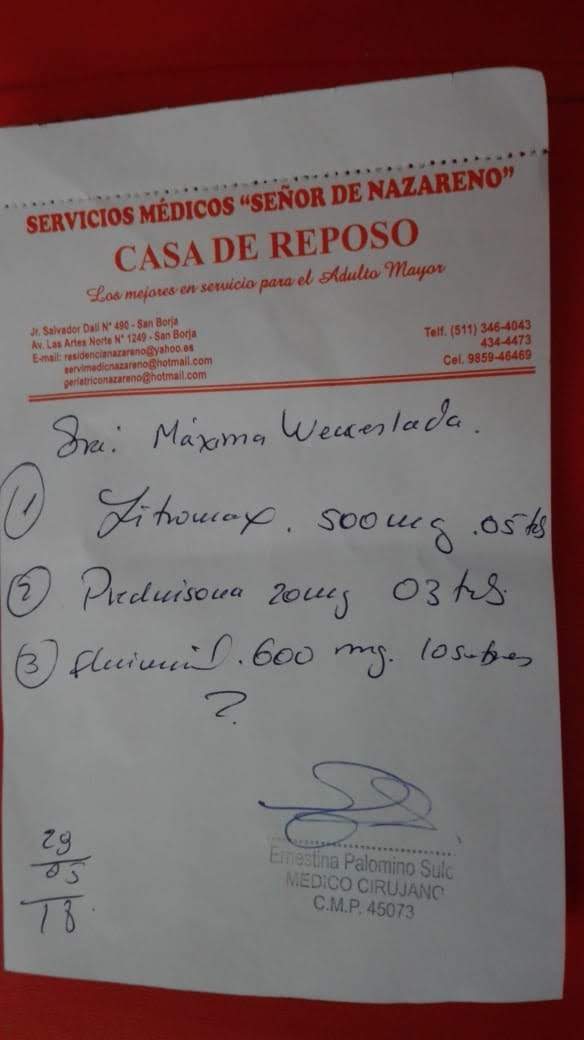 SERVICIOS MÉDICOS “SEÑOR DE NAZARENO”
CASA DE REPOSO
Los mejores en servicio para el Adulto Mayor
Jr. Salvador Dalí N° 490 - San Borja
Av. Las Artes Norte N° 1249 - San Borja
E-mail: residencianazareno@yahoo.es
servimedicnazareno@hotmail.com
geriatriconazareno@hotmail.com
Telf. (511) 346-4043
434-4473
Cel. 9859-46469
Sra: Máxima
1 Zitromax. 500 mg .05 tbs
2 Prednisona 20mg 03 tbs.
3 Fluimucil. 600 mg. 10 sobres
?
29
05
18.
Ernestina Palomino Sulc
MEDICO CIRUJANO
C.M.P. 45073